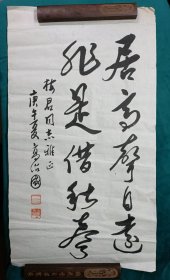 居高聲自遠
非是借秋風
梅君同志雅正
庚午夏